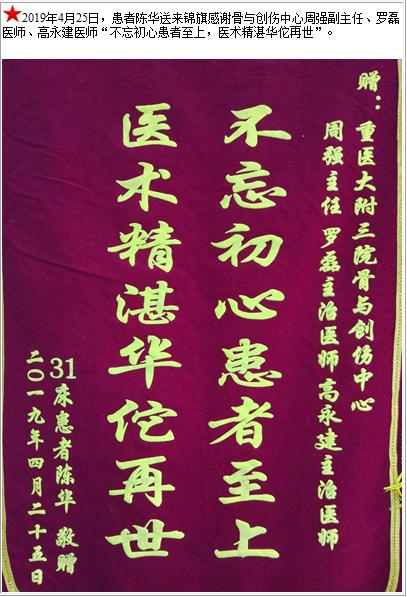 ★2019年4月25日，患者陈华送来锦旗感谢骨与创伤中心周强副主任、罗磊
医师、高永建医师“不忘初心患者至上，医术精湛华佗再世”。
赠：重医大附三院骨与创伤中心
周强主任 罗磊主治医师 高永建主治医师
不忘初心患者至上
医术精湛华佗再世
31床患者陈华 敬赠
二〇一九年四月二十五日